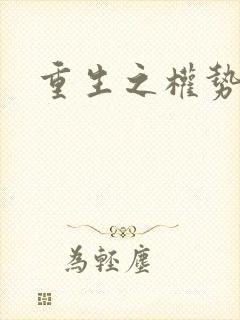 重生之權勢
為輕塵